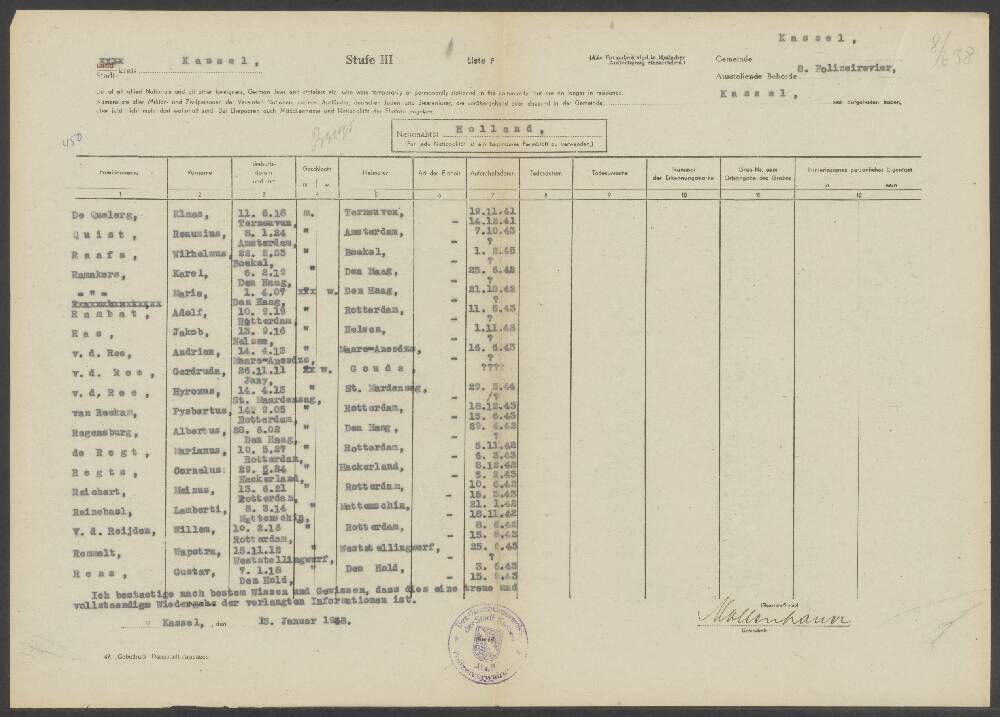 Kassel,
8/6 38
Kassel,
Stadt- kreis
Stufe III
Liste F
(Alle Formulare sind in 4facher Ausfertigung einzureichen.)
Gemeinde
Ausstellende Behörde 8. Polizeirevier,
Kassel,
List of all allied Nationals and all other foreigners, German Jews and stateless etc. who were temporarily or permanently stationed in the community, but are no longer in residence.
Namensliste aller Militär- und Zivilpersonen der Vereinten Nationen, anderer Ausländer, deutscher Juden und Staatenloser, die vorübergehend oder dauernd in der Gemeinde
sich aufgehalten haben,
aber jetzt nicht mehr dort wohnhaft sind. Bei Ehepaaren auch Mädchenname und Nationalität der Ehefrau angeben.
450
Nationalität Holland,
(Für jede Nationalität ist ein besonderes Formblatt zu verwenden.)
Familienname Vorname Geburtsdatum und -ort Geschlecht m. | w. Heimatort Art der Einheit Aufenthaltsdaten Todesdatum Todesursache Nummer der Erkennungsmarke Grab-Nr. oder Ortsangabe des Grabes Hinterlassenes persönliches Eigentum
1 2 3 4 5 6 7 8 9 10 11 12
De Quelerg, Klaas, 11. 6.18 m. Terneuven, 19.11.41
Terneuven, - 14.12.41
Quist, Reaunius, 8. 1.24 " Amsterdam, 7.10.43
Amsterdam, - ?
Raafs, Wilhelmus, 22. 2.23 " Boekel, 1. 2.45
Boekel, - ?
Ramakers, Karel, 6. 2.19 " Den Haag, 23. 6.42
Den Haag, - ?
" = " Maria, 1. 4.07 xxx w. Den Haag, 21.10.42
Den Haag, - ?
Rambat, Adolf, 10. 9.19 " Rotterdam, 11. 5.43
Rotterdam, - ?
Ras, Jakob, 13. 9.16 " Helsen, 1.11.42
Helsen, - ?
v. d. Ree, Andrian, 14. 4.13 " Maare-Anesdzs, 16. 6.43
Maare-Anesdzs, - ?
v. d. Ree, Gerdruda, 26.11.11 xx w. Gouda, ????
Jany,
v. d, Ree, Hyronus, 14. 4.13 " St. Mardensag, 29. 3.44
St. Maardensag, - /?
van Reekam, Pysbertus, 14. 9.05 " Rotterdam, 18.12.43
Rotterdam, - 15. 6.43
Regensburg, Albertus, 28. 6.02 " Den Haag, 29. 4.42
Den Haag, - ?
de Regt, Marianus, 10. 5.27 " Rotterdam, 5.11.42
Rotterdam, - 6. 3.43
Regts, Cornelus: 29. 5.24 " Hackerland, 5.12.42
Hackerland, - 5. 2.43
Reichert, Meinus, 13. 6.21 " Rotterdam, 10. 6.42
Rotterdam, - 15. 5.43
Reinebasl, Lamberti, 8. 3.14 " Mattemschin, 21. 1.42
Mattemschin, - 18.11.42
V. d. Reijden, Willem, 10. 2.16 " Rotterdam, 8. 6.42
Rotterdam, - 15. 5.43
Remmelt, Wapstra, 15.11.12 " Weststellingwerf, 25. 6.43
Weststellingwerf, - ?
Rens, Gustav, 7. 1.18 " Den Hold, 3. 5.43
Den Hold, - 15. 9.43
Ich bestaetige nach bestem Wissen und Gewissen, dass dies eine treue und
vollstaendige Wiedergabe der verlangten Informationen ist.
Kassel, den 13. Januar 1948.
Mollenhauer
Unterschrift
Der Oberbürgermeister der Stadt Kassel
Kassel
Polizeiverwaltung